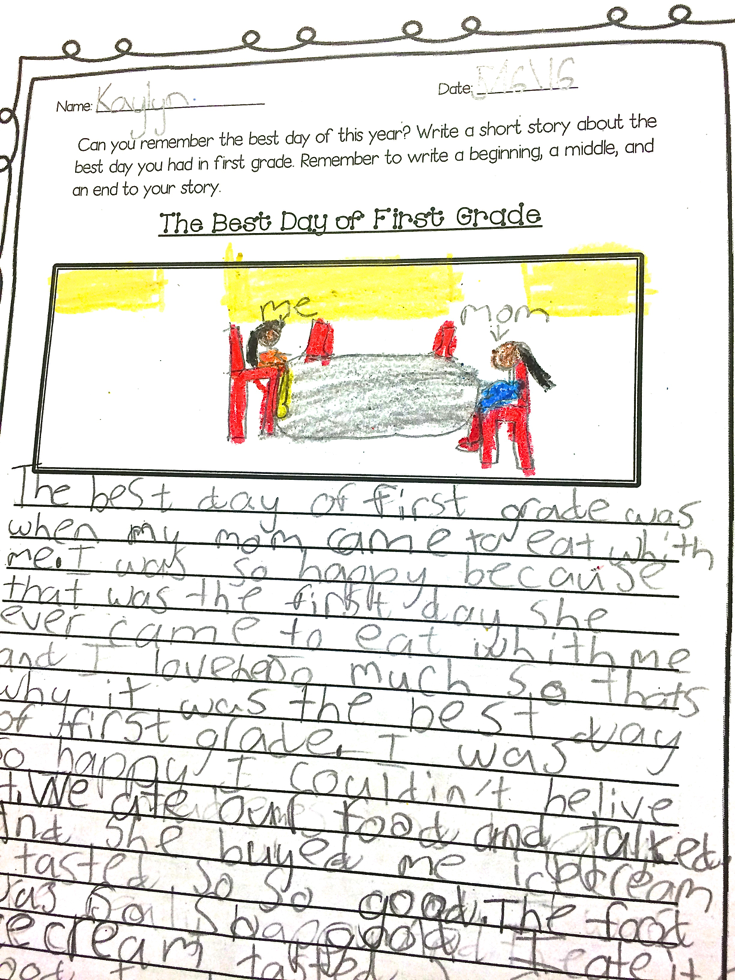 Name: Kaylyn.
Date:
Can you remember the best day of this year? Write a short story about the
best day you had in first grade. Remember to write a beginning, a middle, and
an end to your story.
The Best Day of First Grade
me
mom
The best day of first grade was
when my mom came to eat whith
me. I was so happy because
that was the first day she
ever came to eat whith me
and I love her so much so thats
why it was the best day
of first grade. I was
so happy I couldin't belive
it. We ate our food and talked.
And she buyed me icecream
tasted so so good. The food
was good
icecream tasted